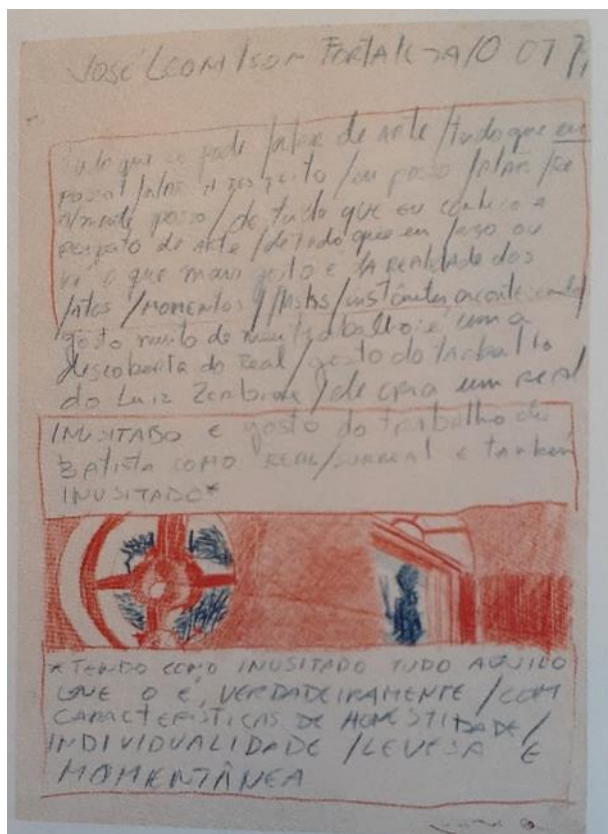 JOSÉ LEONILSON FORTALEZA/O 07
Tudo que se pode falar de arte/tudo que eu
possa falar a respeito/eu posso falar/re
almente posso/de tudo que eu conheço a
respeito de arte/de tudo que eu faço ou
vi o que mais gosto é da realidade dos
fatos/momentos//instântes acontecendo
gosto muito de meu trabalho é uma
descoberta do real/gosto do trabalho
do Luiz Zerbini/de cria um real
INUSITADO e gosto do trabalho do
Batista COMO REAL/SURREAL e também
INUSITADO*
*TENDO COMO INUSITADO TUDO AQUILO
QUE O É, VERDADEIRAMENTE/COM
CARACTERÍSTICAS DE HONESTIDADE/
INDIVIDUALIDADE/LEVESA E
MOMENTÂNEA